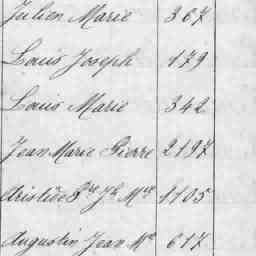 Julien Marie 367
Louis Joseph 179
Louis Marie 342
Jean Marie Pierre 2197
Aristide Pre Jh Mie 1105
Augustin Jean Me 617